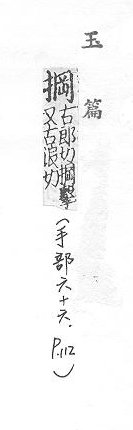 玉篇
掆
古郎切掆擧
又古浪切
(手部六十六. P.112)